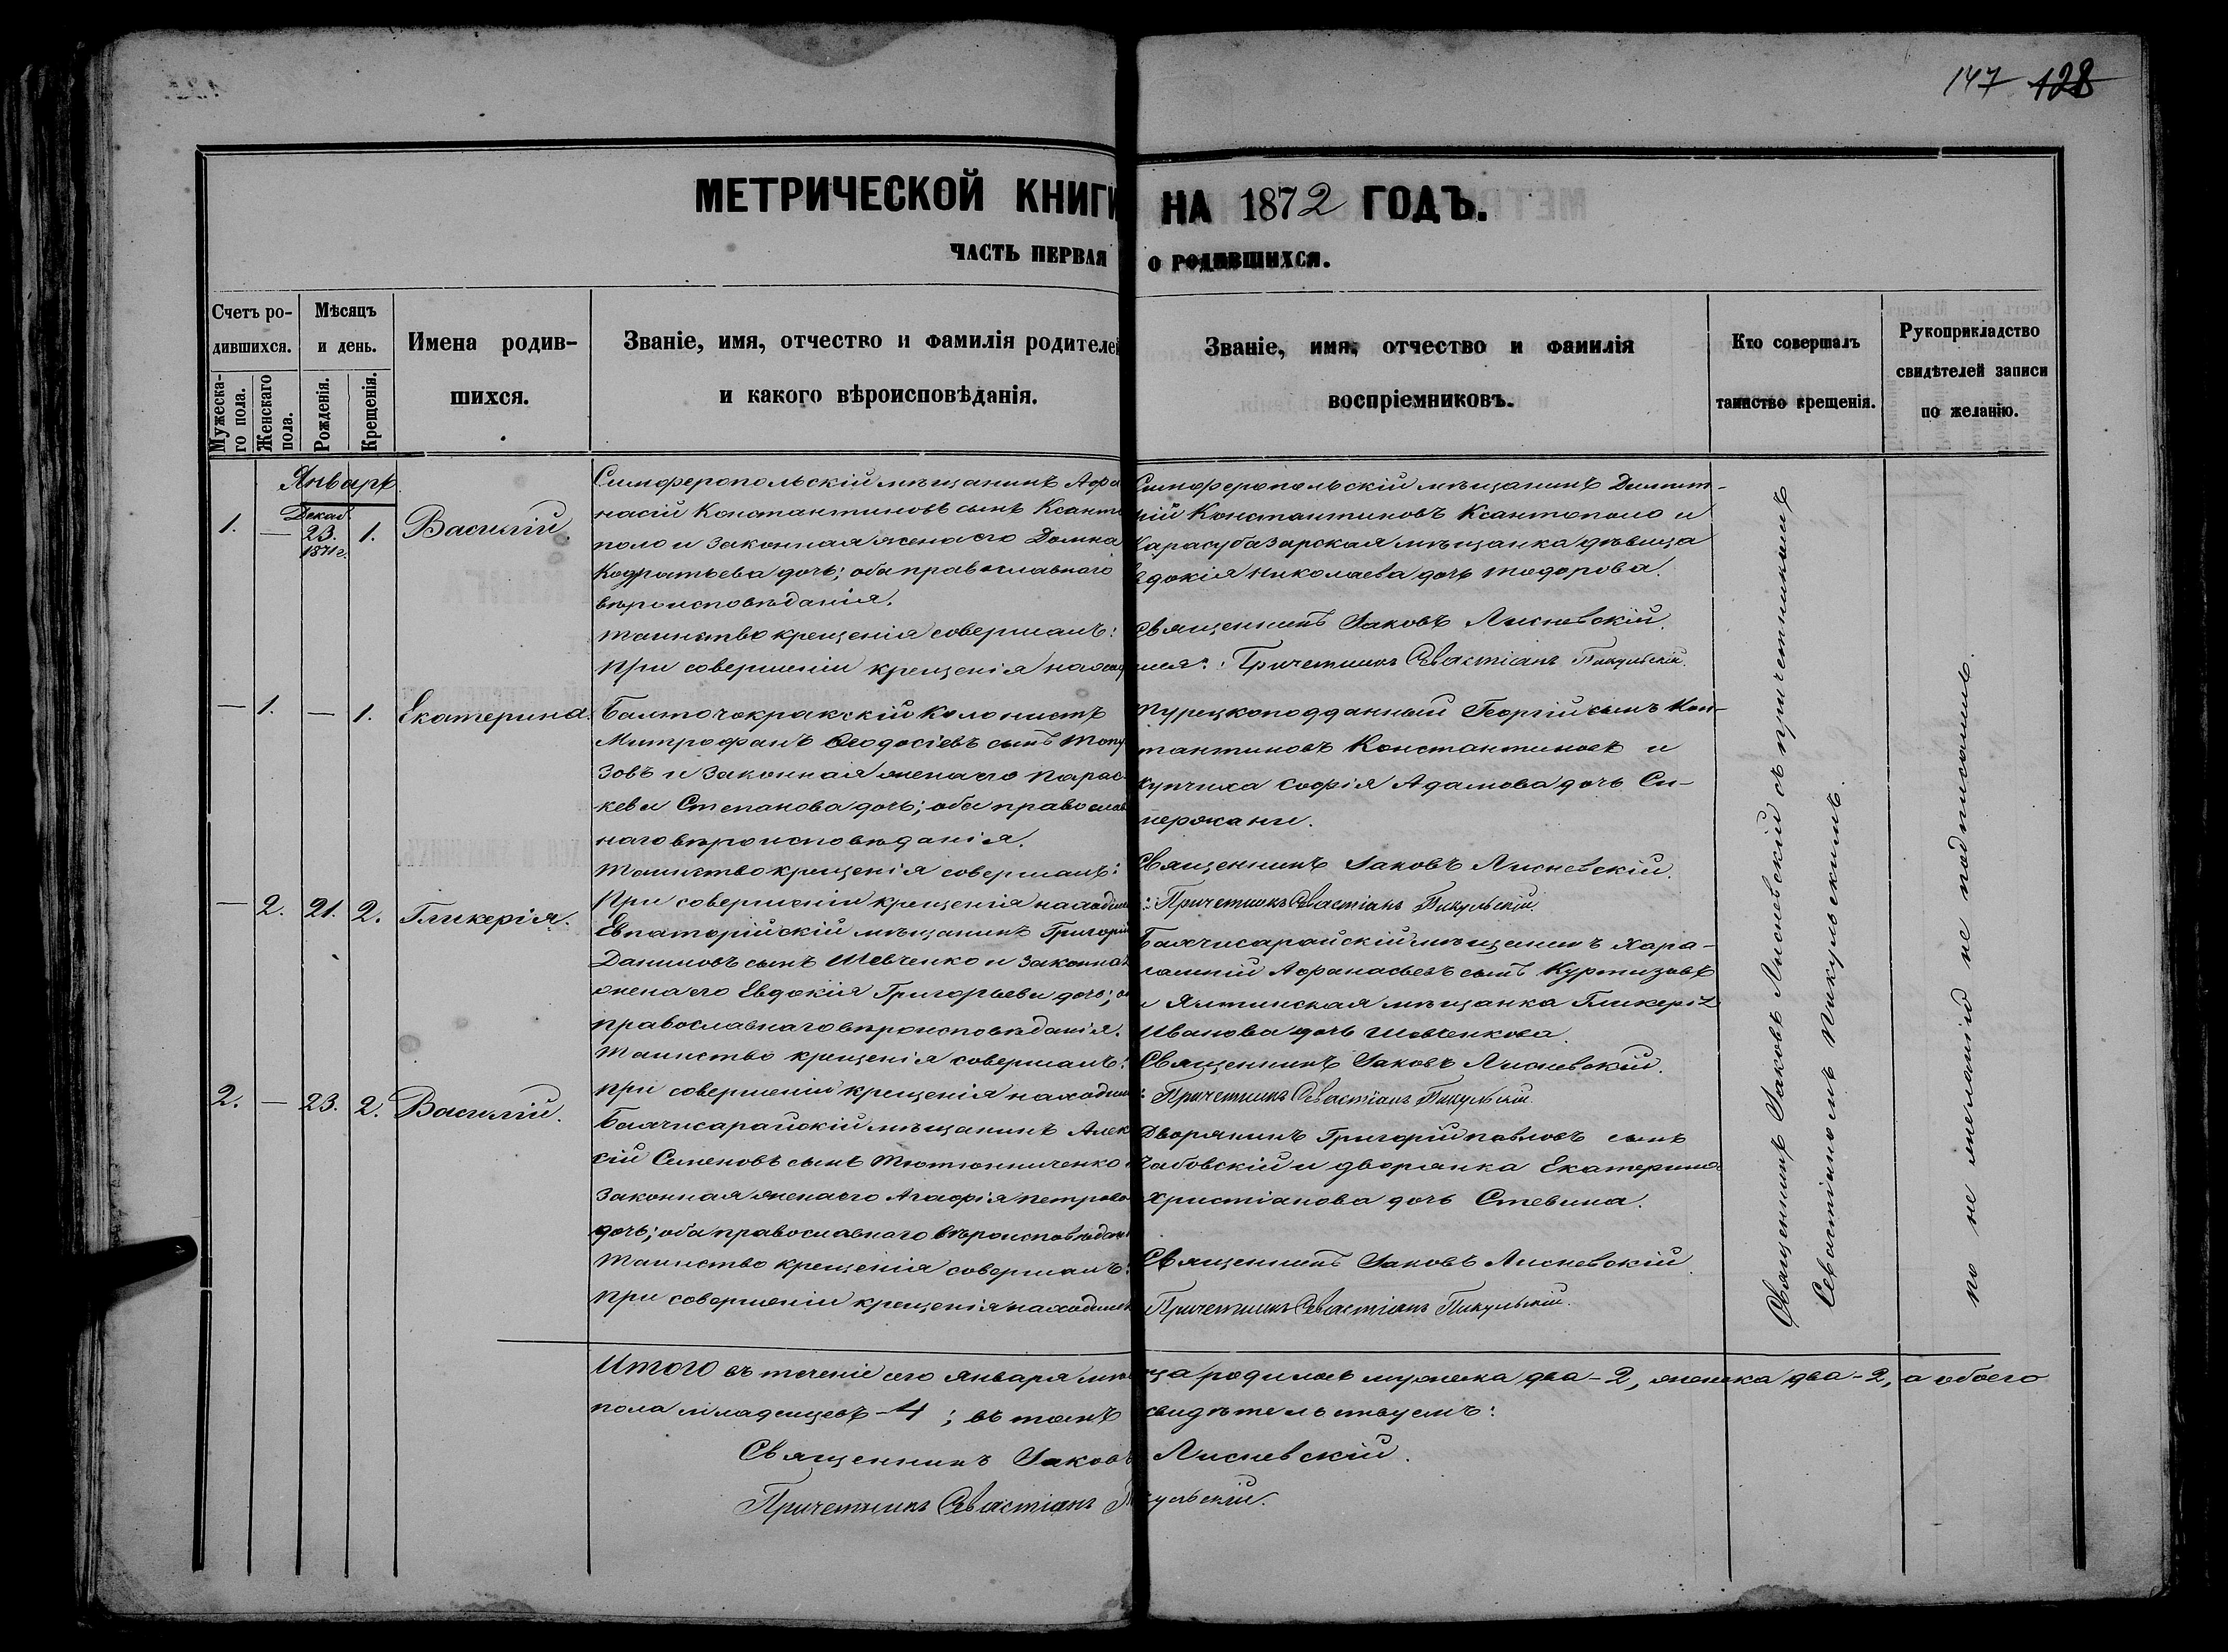 147 128
МЕТРИЧЕСКОЙ КНИГИ НА 1872 ГОДЪ.
ЧАСТЬ ПЕРВАЯ О РОДИВШИХСЯ.
Счетъ ро-
дившихся.
Мужеска-
го пола.
Женскаго
пола.
Мѣсяцъ
и день.
Рожденія.
Крещенія.
Имена родив-
шихся.
Званіе, имя, отчество и фамилія родителей
и какого вѣроисповѣданія.
Званіе, имя, отчество и фамилія
воспріемниковъ.
Кто совершалъ
таинство крещенія.
Рукоприкладство
свидѣтелей записи
по желанію.
Январь
1. — Декаб. 23. 1871 г. 1. Василій.
Симферопольскій мѣщанинъ Афа
насій Константиновъ сынъ Ксанто
поло и законная жена его Домна
Кодратьева дочь; оба православнаго
вѣроисповѣданія.
Таинство крещенія совершалъ:
При совершеніи крещенія наход
Симферопольскій мѣщанинъ Димит-
рій Константиновъ Ксантополо и
Карасубазарская мѣщанка дѣвица
Евдокія Николаева дочь Тодорова.
Священникъ Іаковъ Лисневскій.
ился: Причетникъ Севастіанъ Пикульскій.
— 1. — 1. Екатерина.
Балточокракскій колонистъ
Митрофанъ Ѳеодосіевъ сынъ Топу
зовъ и законная жена его Парас-
кева Степанова дочь; оба православ
наго вѣроисповѣданія.
Таинство крещенія совершалъ:
При совершеніи крещенія находил
Турецкоподданный Георгій сынъ Кон-
тантиновъ Константиновъ и
купчиха Софія Адамова дочь Си-
пержани.
Священникъ Іаковъ Лисневскій.
: Причетникъ Севастіанъ Пикульскій.
— 2. 21. 2. Гликерія.
Евпаторійскій мѣщанинъ Григорій
Даниловъ сынъ Шевченко и законная
жена его Евдокія Григорьева дочь; о
православнаго вѣроисповѣданія.
Таинство крещенія совершалъ:
При совершеніи крещенія находил
Бахчисарайскій мѣщанинъ Хара-
лампій Афанасьевъ сынъ Куртизовъ
и Ялтинская мѣщанка Гликерія
Иванова дочь Шевченкова.
Священникъ Іаковъ Лисневскій.
: Причетникъ Севастіанъ Пикульскій.
2. — 23. 2. Василій.
Бахчисарайскій мѣщанинъ Алек
сій Семеновъ сынъ Тютюнниченко и
законная жена его Агафія Петрова
дочь; оба православнаго вѣроисповѣдан
Таинство крещенія совершалъ:
При совершеніи крещенія находил
Дворянинъ Григорій Павловъ сынъ
Чабовскій и дворянка Екатерина
Христіанова дочь Стевина.
Священникъ Іаковъ Лисневскій.
Причетникъ Севастіанъ Пикульскій.
Священникъ Іаковъ Лисневскій съ причетникомъ
Севастіаномъ Пикульскимъ.
по не желанію не подписались.
Итого въ теченіе сего января мѣсяца родилось мужеска два - 2, женска два - 2, а обоего
пола младенцевъ - 4; въ томъ свидѣтельствуемъ:
Священникъ Іаковъ Лисневскій.
Причетникъ Севастіанъ Пикульскій.